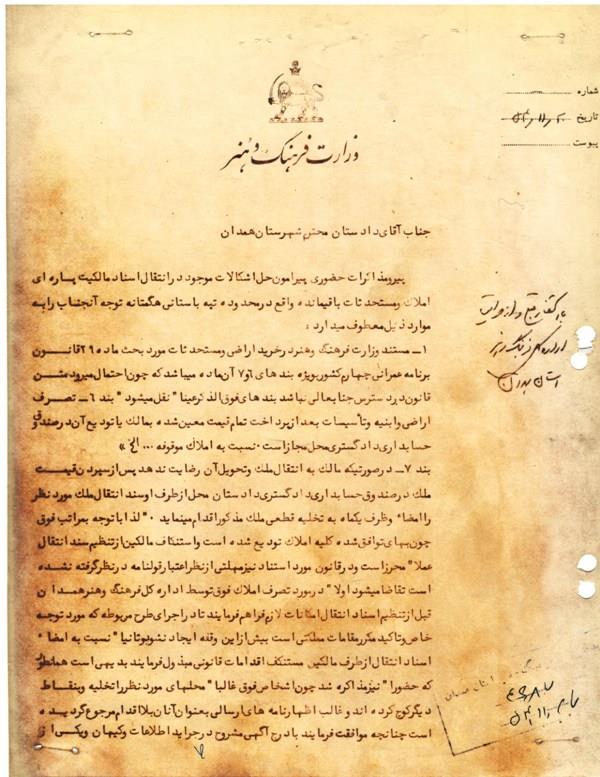 وزارت فرهنگ و هنر
شماره
تاریخ
پیوست
جناب آقای دادستان محترم شهرستان همدان
پیرو مذاکرات حضوری پیرامون حل اشکالات موجود در انتقال اسناد مالکیت پاره ای
املاک و مستحدثات باقیمانده واقع در محدوده تپه باستانی هگمتانه توجه آنجناب را به
موارد ذیل معطوف میدارد :
۱ــ مستند وزارت فرهنگ و هنر در خرید اراضی و مستحدثات مورد بحث ماده ۲۹ قانون
برنامه عمرانی چهارم کشور بویژه بند های ۶و۷ آن ماده میباشد که چون احتمال میرود متن
قانون در دسترس جنابعالی نباشد بند های فوق الذکر عینا" نقل میشود " بند ۶ــ تصرف
اراضی و ابنیه و تأسیسات بعد از پرداخت تمام قیمت معین شده بمالک یا تودیع آن در صندوق
حسابداری دادگستری محل مجاز است ۰ نسبت به املاک موقوفه ... الخ »
بند ۷ــ در صورتیکه مالک به انتقال ملک و تحویل آن رضایت ندهد پس از سپردن قیمت
ملک در صندوق حسابداری دادگستری دادستان محل از طرف او سند انتقال ملک مورد نظر
را امضاء و ظرف یکماه به تخلیه قطعی ملک مذکور اقدام مینماید ۰" لذا با توجه بمراتب فوق
چون بهای توافق شده کلیه املاک تودیع شده است و استنکاف مالکین از تنظیم سند انتقال
عملا" محرز است و در قانون مورد استناد نیز مهلتی از نظر اعتبار قولنامه در نظر گرفته نشده
است تقاضا میشود اولا" در مورد تصرف املاک فوق توسط اداره کل فرهنگ و هنر همدان
قبل از تنظیم اسناد انتقال امکانات لازم فراهم فرمایند تا در اجرای طرح مربوطه که مورد توجه
خاص و تاکید مکرر مقامات مملکتی است بیش از این وقفه ایجاد نشود ثانیا" نسبت به امضاء
اسناد انتقال از طرف مالکین مستنکف اقدامات قانونی مبذول فرمایند بدیهی است همانطور
که حضورا" نیز مذاکره شد چون اشخاص فوق غالبا" محلهای مورد نظر را تخلیه و بنقاط
دیگر کوچ کرده اند و غالب اظهارنامه های ارسالی بعنوان آنان بلااقدام مرجوع گردیده
است چنانچه موافقت فرمایند با درج آگهی مشروح در جراید اطلاعات و کیهان و یکی از